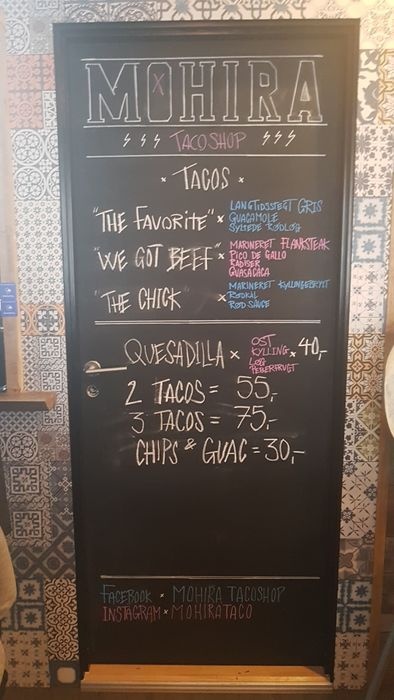 MOHIRA
TACOSHOP
TACOS
"THE FAVORITE" x LANGTIDSSTEGT GRIS
GUACAMOLE
SYLTEDE RØDLØG
"WE GOT BEEF" x MARINERET FLANKSTEAK
PICO DE GALLO
RADISER
GUASACACA
"THE CHICK" x MARINERET KYLLINGEBRYST
RØDKÅL
RØD SAUCE
QUESADILLA x OST x 40,-
KYLLING
LØG
PEBERFRUGT
2 TACOS = 55,-
3 TACOS = 75,-
CHIPS & GUAC = 30,-
FACEBOOK x MOHIRA TACOSHOP
INSTAGRAM x MOHIRATACO